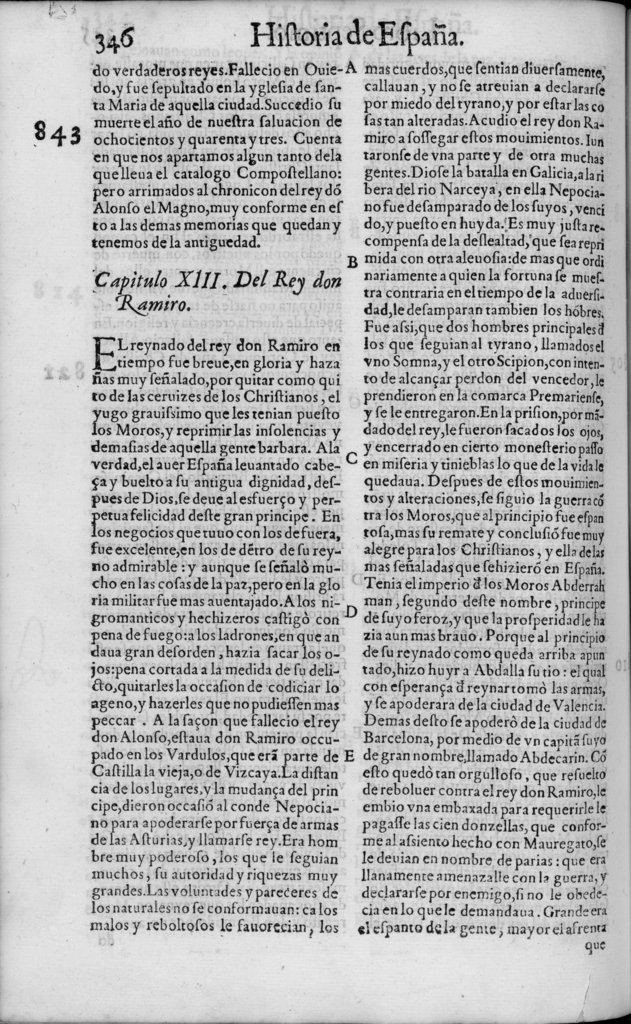 346 Hiſtoria de Eſpaña.
do verdaderos reyes. Fallecio en Ouie-
do, y fue ſepultado en la ygleſia de ſan-
ta Maria de aquella ciudad. Succedio ſu
muerte el año de nueſtra ſaluacion de
843
ochocientos y quarenta y tres. Cuenta
en que nos apartamos algun tanto dela
que lleua el catalogo Compoſtellano:
pero arrimados al chronicon del rey dõ
Alonſo el Magno, muy conforme en eſ
to a las demas memorias que quedan y
tenemos de la antiguedad.
Capitulo XIII. Del Rey don
Ramiro.
EL reynado del rey don Ramiro en
tiempo fue breue, en gloria y haza
ñas muy ſeñalado, por quitar como qui
to de las ceruizes de los Chriſtianos, el
yugo grauiſsimo que les tenian pueſto
los Moros, y reprimir las inſolencias y
demaſias de aquella gente barbara. Ala
verdad, el auer Eſpaña leuantado cabe-
ça y buelto a ſu antigua dignidad, deſ-
pues de Dios, ſe deue al esfuerço y per-
petua felicidad deſte gran principe. En
los negocios que tuuo con los de fuera,
fue excelente, en los de dẽtro de ſu rey-
no admirable: y aunque ſe ſeñalò mu-
cho en las coſas de la paz, pero en la glo
ria militar fue mas auentajado. A los ni-
gromanticos y hechizeros caſtigò con
pena de fuego: a los ladrones, en que an
daua gran deſorden, hazia ſacar los o-
jos: pena cortada a la medida de ſu deli-
cto, quitarles la occaſion de codiciar lo
ageno, y hazerles que no pudieſſen mas
peccar. A la ſaçon que fallecio el rey
don Alonſo, eſtaua don Ramiro occu-
pado en los Vardulos, que erã parte de
Caſtilla la vieja, o de Vizcaya. La diſtan
cia de los lugares, y la mudança del prin
cipe, dieron occaſiõ al conde Nepocia-
no para apoderarſe por fuerça de armas
de las Aſturias, y llamarſe rey. Era hom
bre muy poderoſo, los que le ſeguian
muchos, ſu autoridad y riquezas muy
grandes. Las voluntades y pareceres de
los naturales no ſe conformauan: ca los
malos y reboltoſos le fauorecian, los
A
B
C
D
E
mas cuerdos, que ſentian diuerſamente,
callauan, y no ſe atreuian a declararſe
por miedo del tyrano, y por eſtar las co
ſas tan alteradas. Acudio el rey don Ra-
miro a ſoſſegar eſtos mouimientos. Iun
taronſe de vna parte y de otra muchas
gentes. Dioſe la batalla en Galicia, a la ri
bera del rio Narceya, en ella Nepocia-
no fue deſamparado de los ſuyos, venci
do, y pueſto en huyda. Es muy juſta re-
compenſa de la deſlealtad, que ſea repri
mida con otra aleuoſia: de mas que ordi
nariamente a quien la fortuna ſe mueſ-
tra contraria en el tiempo de la aduerſi-
dad, le deſamparan tambien los hõbres.
Fue aſsi, que dos hombres principales đ
los que ſeguian al tyrano, llamados el
vno Somna, y el otro Scipion, con inten-
to de alcançar perdon del vencedor, le
prendieron en la comarca Premarienſe,
y ſe le entregaron. En la priſion, por mã-
dado del rey, le fueron ſacados los ojos,
y encerrado en cierto moneſterio paſſo
en miſeria y tinieblas lo que de la vida le
quedaua. Deſpues de eſtos mouimien-
tos y alteraciones, ſe ſiguio la guerra cõ
tra los Moros, que al principio fue eſpan
toſa, mas ſu remate y concluſiõ fue muy
alegre para los Chriſtianos, y ella de las
mas ſeñaladas que ſe hizierõ en Eſpaña.
Tenia el imperio đ los Moros Abderrah
man, ſegundo deſte nombre, principe
de ſuyo feroz, y que la proſperidad le ha
zia aun mas brauo. Porque al principio
de ſu reynado como queda arriba apun
tado, hizo huyr a Abdalla ſu tio: el qual
con eſperança đ reynar tomò las armas,
y ſe apoderara de la ciudad de Valencia.
Demas deſto ſe apoderò de la ciudad de
Barcelona, por medio de vn capitã ſuyo
de gran nombre, llamado Abdecarin. Cõ
eſto quedò tan orgulloſo, que reſuelto
de reboluer contra el rey don Ramiro, le
embio vna embaxada para requerirle le
pagaſſe las cien donzellas, que confor-
me al aſsiento hecho con Mauregato, ſe
le deuian en nombre de parias: que era
llanamente amenazalle con la guerra, y
declararſe por enemigo, ſi no le obede-
cia en lo que le demandaua. Grande era
el eſpanto de la gente, mayor el afrenta
que